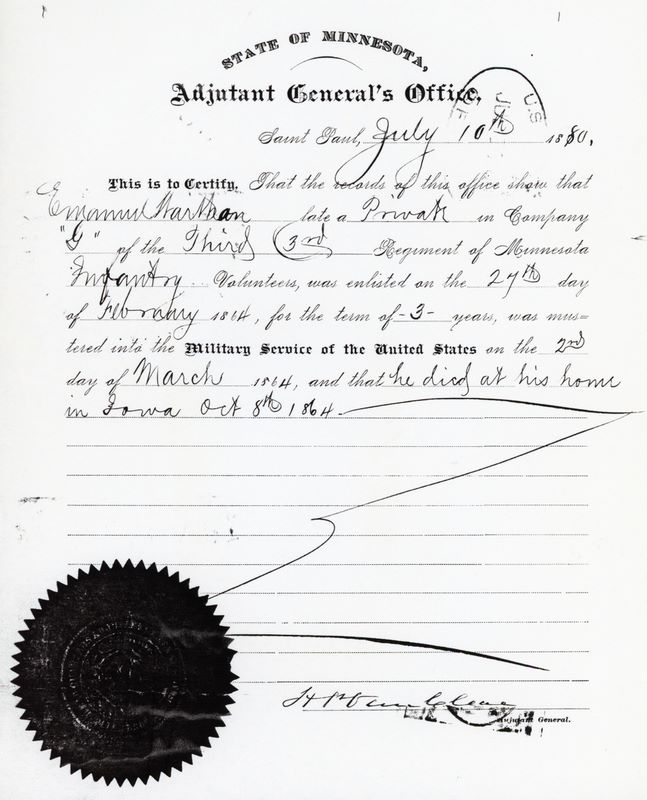 STATE OF MINNESOTA,
Adjutant General's Office,
U.S
Saint Paul, July 10th 1880.
This is to Certify, That the records of this office show that
Emanuel late a Private in Company
"G" of the Third (3rd Regiment of Minnesota
Infantry Volunteers, was enlisted on the 27th day
of February 1864, for the term of -3- years, was mus=
tered into the Military Service of the United States on the 2nd
day of March 1864, and that he died at his home
in Iowa Oct 8th 1864
Adjutant General.